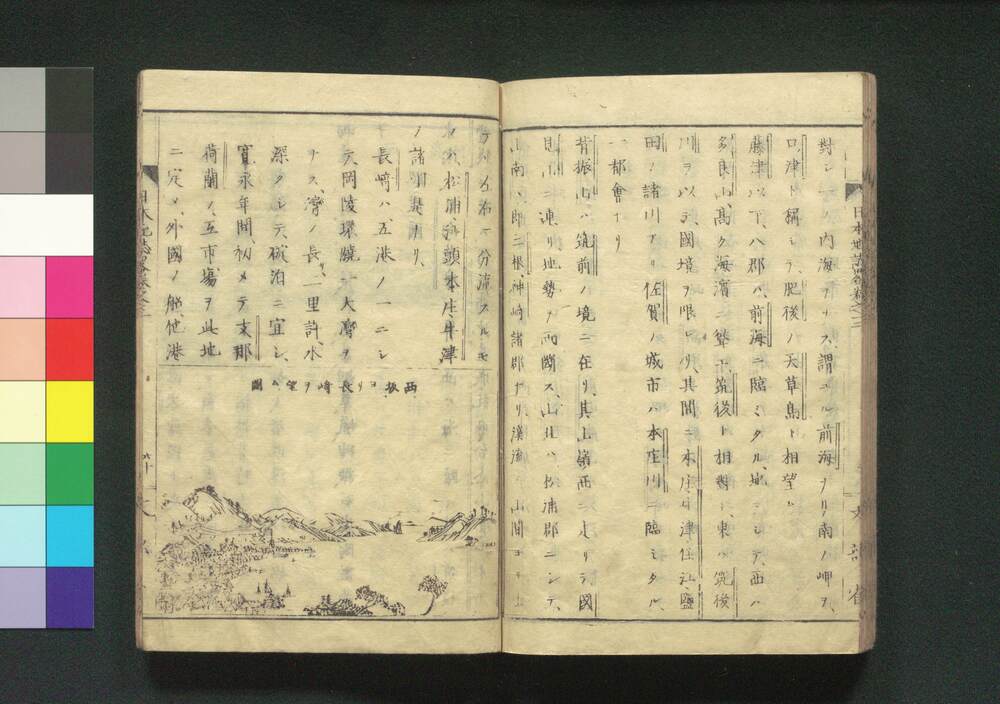 對シ一ノ內海ヲナス、謂ユル前海ナリ、南ノ岬ヲ、
口ノ津ト稱シテ、肥後ノ天草島ト相望ム
藤津以下、八郡ハ、前海ニ臨ミタル地ニシテ、西ハ
多良山、高ク海濱ニ聳エ、筑後ト相對シ、東ハ筑後
川ヲ以テ國境ヲ限レリ、其間ニ本庄牛津住江鹽
田ノ諸川アリ、佐賀ノ城市ハ本庄川ニ臨ミタル、
一都會ナリ
脊振山ハ、筑前ノ境ニ在リ、其山嶺西ニ走リテ國
見山ニ連リ地勢ヲ兩斷ス、山北ハ松浦郡ニシテ、
山南ハ卽三根、神崎諸郡ナリ、溪流
松浦、
本庄、牛津
ノ諸川
長崎ハ、五港ノ一ニシ
テ岡陵環繞シ大灣ヲ
ナス、灣ノ長、一里許、水
深クシテ碇泊ニ宜シ、
寬永年間、初メテ支那
荷蘭ノ、互市場ヲ此地
ニ定メ、外國ノ船、他港
西坂ヨリ長崎ヲ望ム圖
日本地誌畧卷之三
文部省